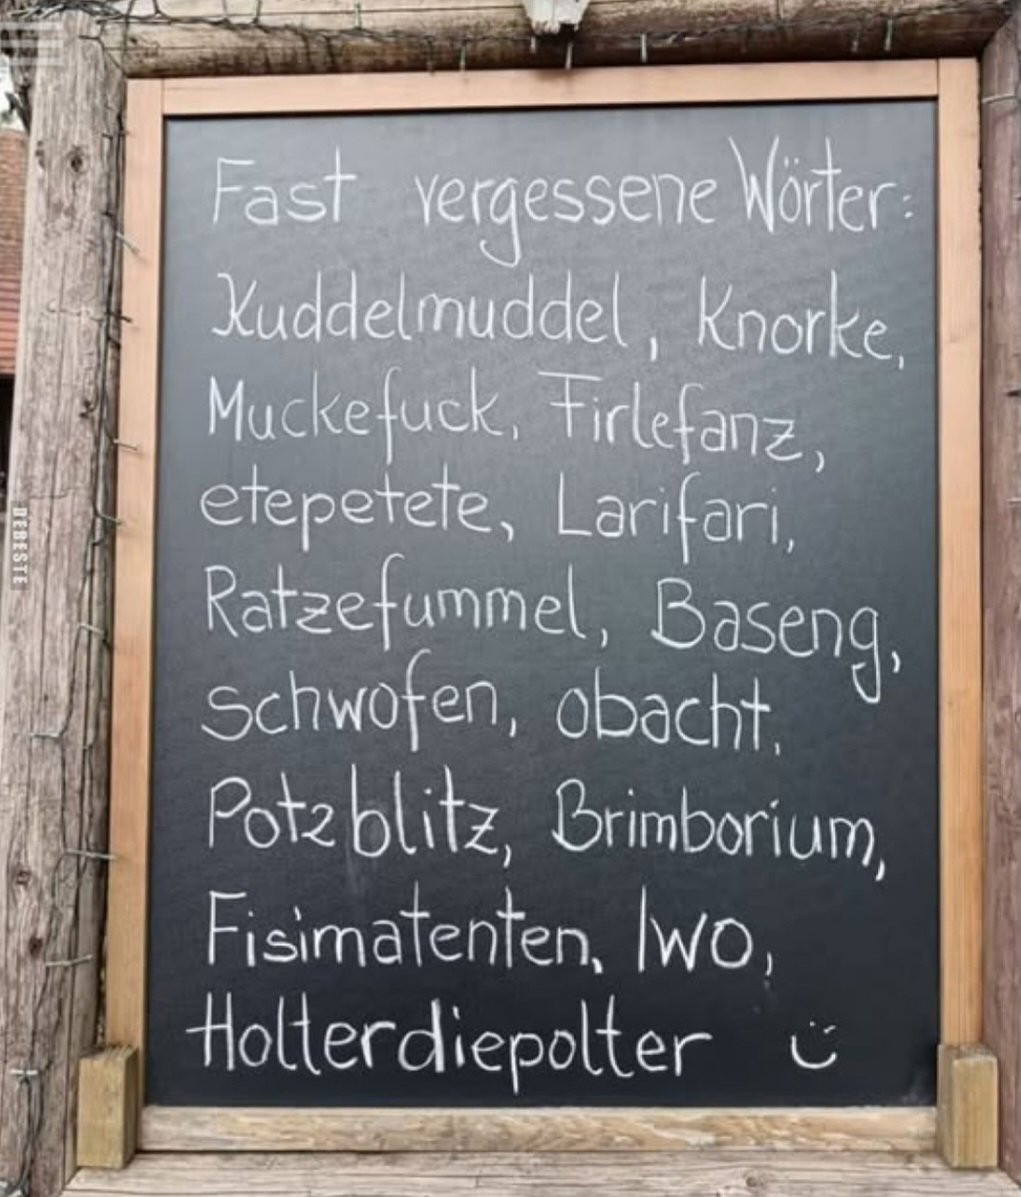 Fast vergessene Wörter:
Kuddelmuddel, Knorke,
Muckefuck, Firlefanz,
etepetete, Larifari,
Ratzefummel, Baseng,
schwofen, obacht,
Potzblitz, Brimborium,
Fisimatenten, IWO,
Holterdiepolter
DEBESTE